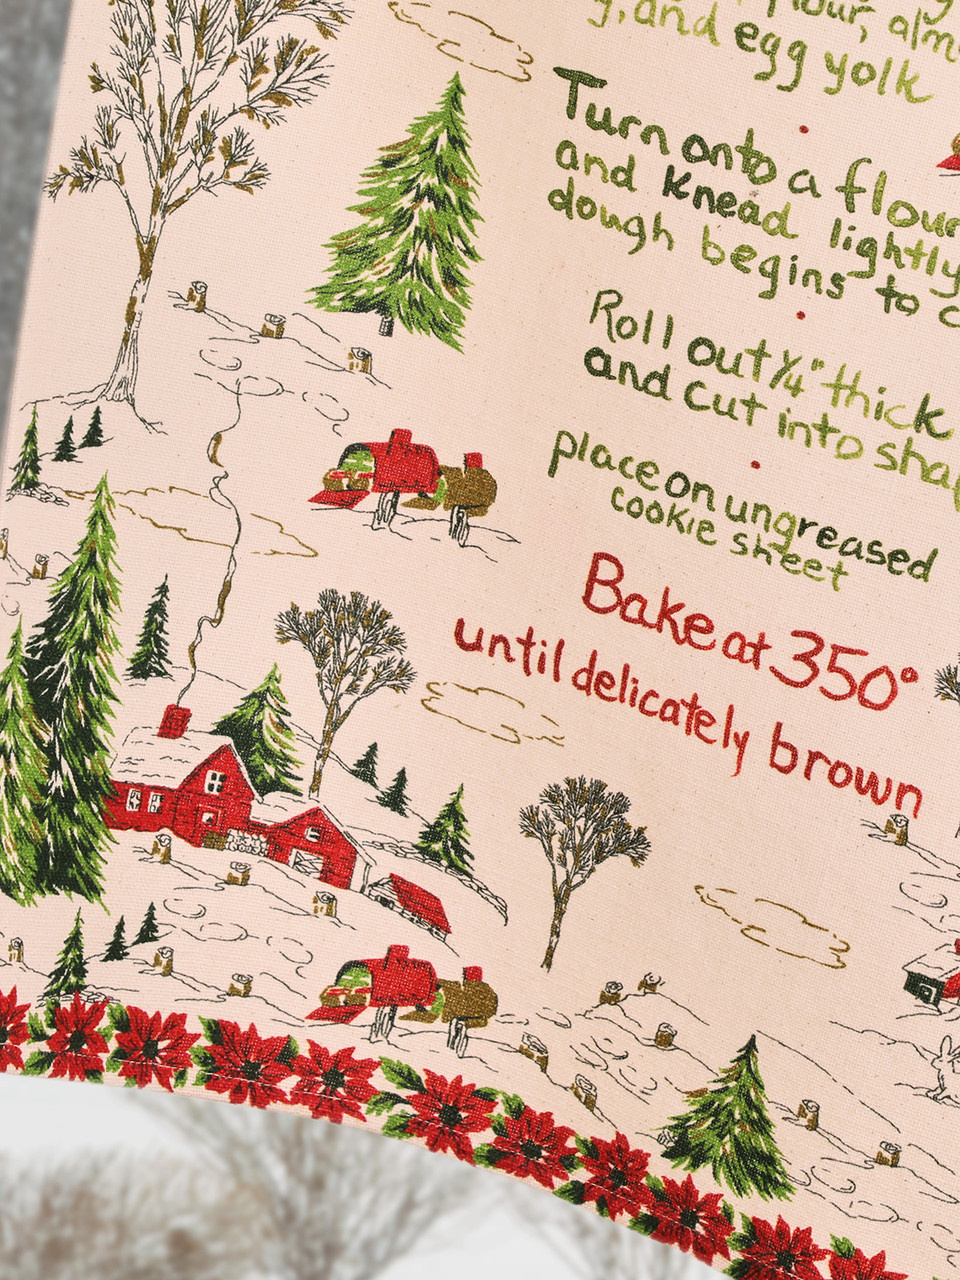 flour, alm
g, and egg yolk
Turn onto a flour
and knead lightly
dough begins to c
Roll out ¼" thick
and cut into shap
place on ungreased
cookie sheet
Bake at 350°
until delicately brown